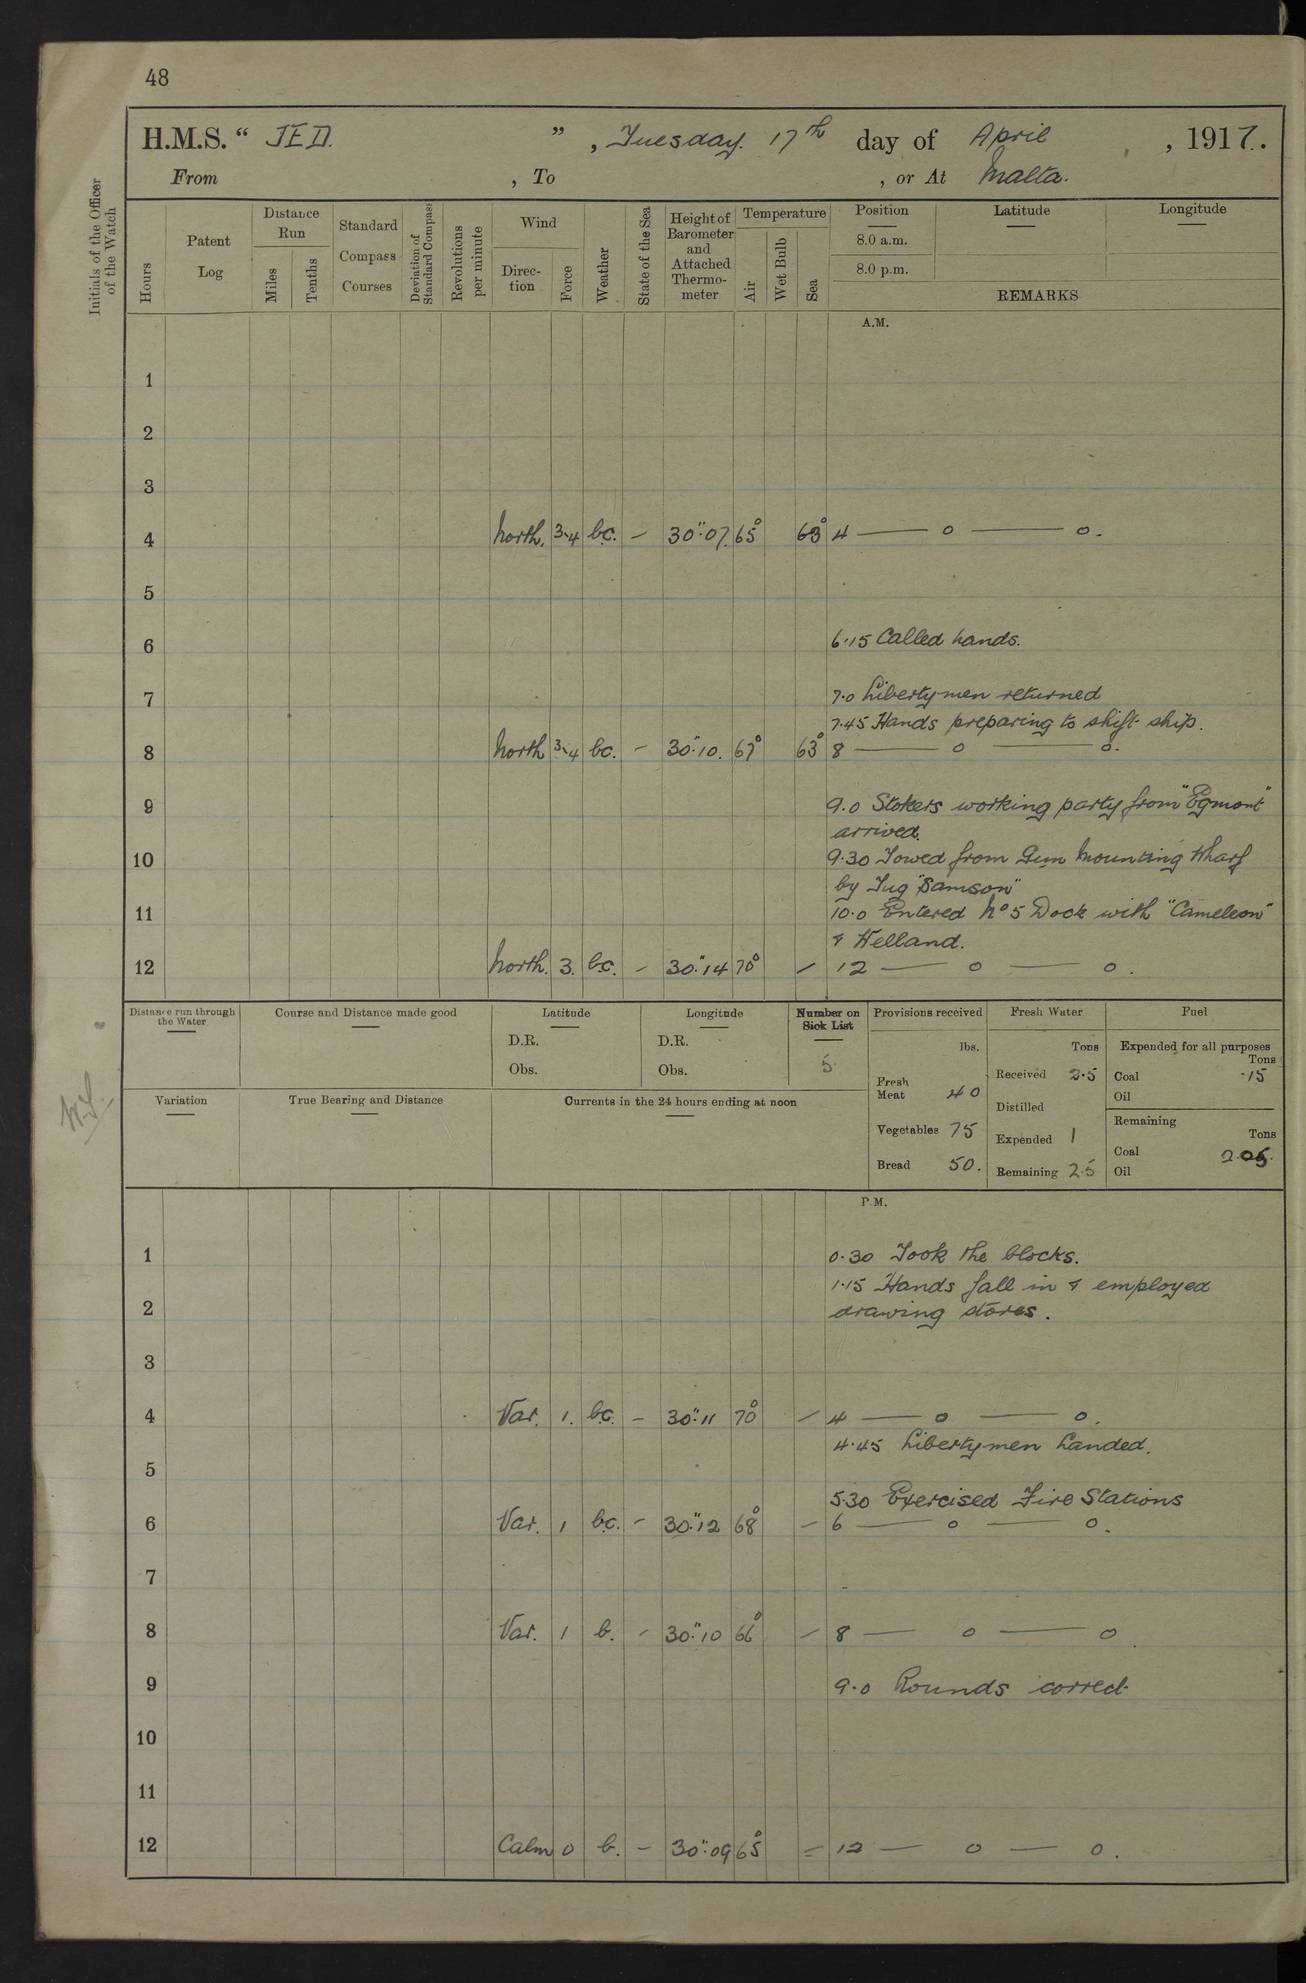 48
H.M.S. " JED. " , Tuesday. 17th day of April , 1917.
From , To , or At Malta.
Initials of the Officer of the Watch
Hours
Patent Log
Distance Run
Miles
Tenths
Standard Compass Courses
Deviation of Standard Compass
Revolutions per minute
Wind
Direction
Force
Weather
State of the Sea
Height of Barometer and Attached Thermometer
Temperature
Air
Wet Bulb
Sea
Position Latitude Longitude
8.0 a.m.
8.0 p.m.
REMARKS
A.M.
1
2
3
4 North. 3-4 b.c. – 30".07. 65° 63° 4 — o — o.
5
6 6.15 Called hands.
7 7.0 Libertymen returned
7.45 Hands preparing to shift ship.
8 North 3-4 bc. – 30".10. 67° 63° 8 — o — o.
9 9.0 Stokers working party from "Egmont"
arrived.
10 9.30 Towed from Gun Mounting Wharf
by Tug "Samson"
11 10.0 Entered No 5 Dock with "Cameleon"
& Welland.
12 North. 3. b.c. – 30".14 70° – 12 — o — o.
Distance run through the Water
Course and Distance made good
Latitude
D.R.
Obs.
Longitude
D.R.
Obs.
Number on Sick List
5.
Provisions received
lbs.
Fresh Meat 40
Vegetables 75
Bread 50.
Fresh Water
Tons
Received 2.5
Distilled
Expended 1
Remaining 25
Fuel
Expended for all purposes
Tons
Coal .15
Oil
Remaining
Tons
Coal 2.05.
Oil
Variation
True Bearing and Distance
Currents in the 24 hours ending at noon
P.M.
1 0.30 Took the blocks.
1.15 Hands fall in & employed
2 drawing stores.
3
4 Var. 1. b.c. – 30".11 70° – 4 — o — o.
4.45 Libertymen Landed.
5
5.30 Exercised Fire Stations
6 Var. 1 b.c. – 30".12 68° – 6 — o — o.
7
8 Var. 1 b. – 30".10 66° – 8 — o — o
9 9.0 Rounds correct.
10
11
12 Calm 0 b. – 30".09 65° = 12 — o — o.